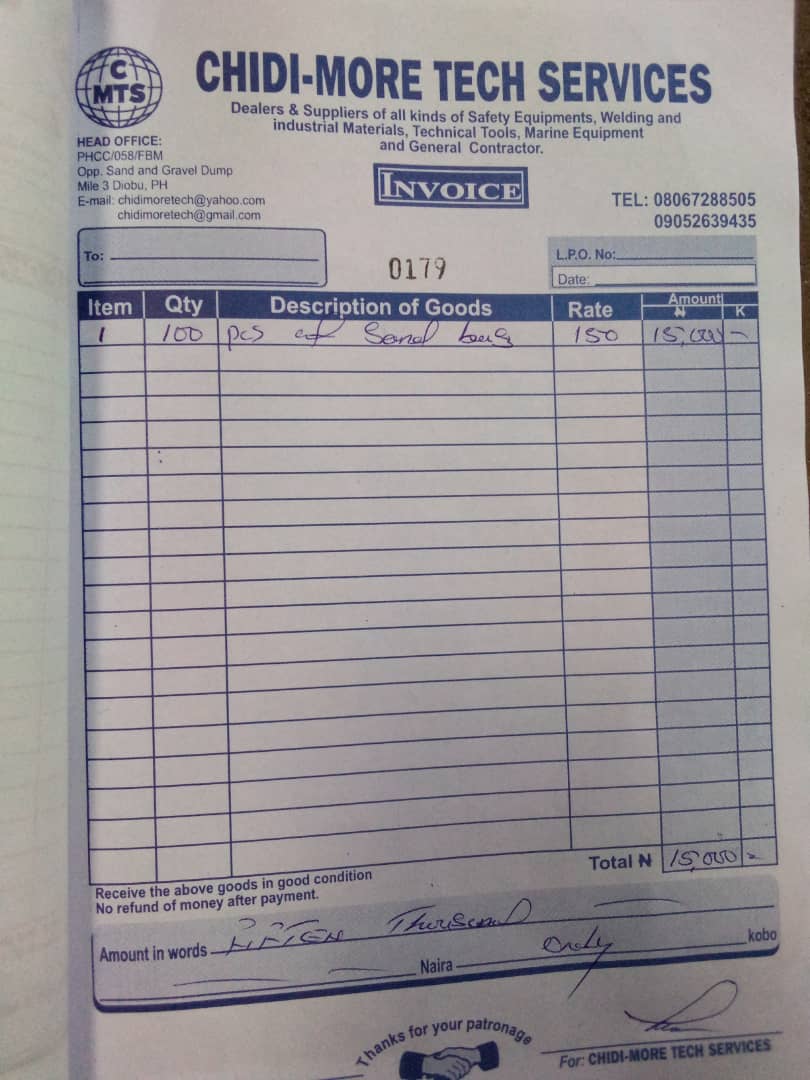 C
MTS
CHIDI-MORE TECH SERVICES
Dealers & Suppliers of all kinds of Safety Equipments, Welding and
industrial Materials, Technical Tools, Marine Equipment
and General Contractor.
HEAD OFFICE:
PHCC/058/FBM
Opp. Sand and Gravel Dump
Mile 3 Diobu, PH
E-mail: chidimoretech@yahoo.com
chidimoretech@gmail.com
INVOICE
TEL: 08067288505
09052639435
To:
0179
L.P.O. No:
Date:
Item Qty Description of Goods Rate Amount
₦ K
1 100 pcs of Sand bag 150 15,000 -
Total ₦ 15,000 =
Receive the above goods in good condition
No refund of money after payment.
Amount in words FIFTEEN Thousand
Naira Only kobo
Thanks for your patronage
For: CHIDI-MORE TECH SERVICES